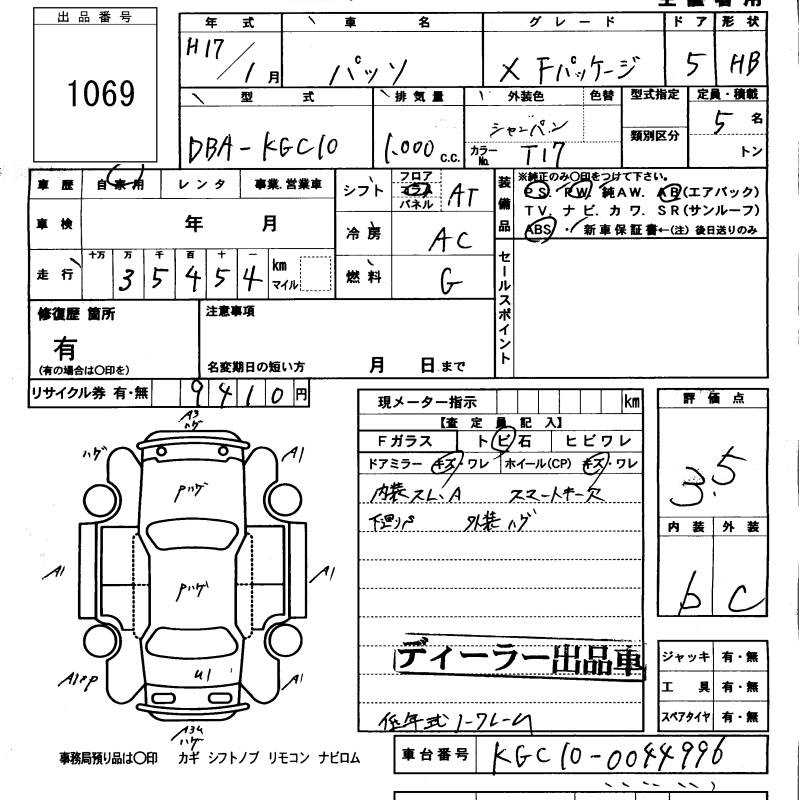 出品番号
1069
年式 車名 グレード ドア 形状
H17/1月 パッソ X Fパッケージ 5 HB
型式 排気量 外装色 色替 型式指定 定員・積載
DBA-KGC10 1.000 c.c. シャンパン 5名
カラーNo. T17 類別区分 トン
車歴 自家用 レンタ 事業.営業車
車検 年 月
走行 十万 万 千 百 十 一 km マイル
3 5 4 5 4
シフト フロア コラム パネル AT
冷房 AC
燃料 G
装備品
※純正のみ〇印をつけて下さい。
PS. PW. 純AW. AB(エアバック)
TV. ナビ. カワ. SR(サンルーフ)
ABS ・ 新車保証書←(注) 後日送りのみ
セールスポイント
修復歴 箇所
有
(有の場合は〇印を)
注意事項
名変期日の短い方 月 日まで
リサイクル券 有・無 9410円
現メーター指示 km
【査定員記入】
Fガラス トビ石 ヒビワレ
ドアミラー キズ・ワレ ホイール(CP) キズ・ワレ
内装スレ.A スマートキー欠
下廻りP 外装ハゲ
ディーラー出品車
評価点
3.5
内装 外装
b C
ジャッキ 有・無
工具 有・無
スペアタイヤ 有・無
A3
ハゲ
ハゲ
A1
Pハゲ
A1
Pハゲ
A1
U1
A1PP
A1
ハゲ
事務局預り品は〇印 カギ シフトノブ リモコン ナビロム
車台番号 KGC10-0044996